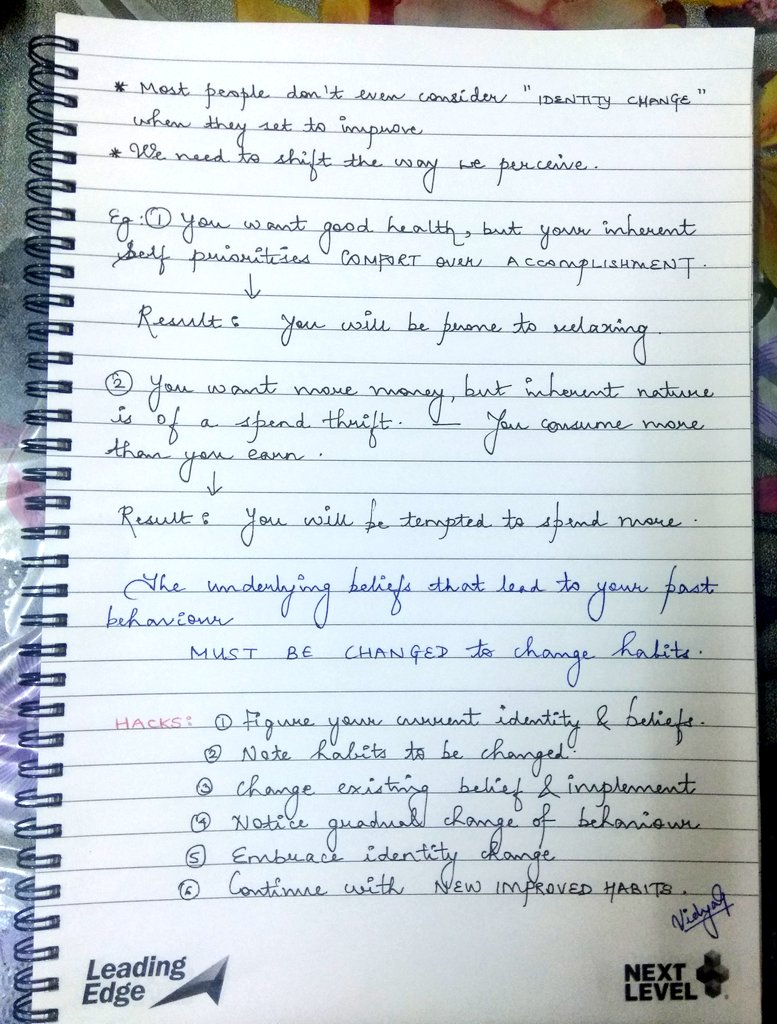 * Most people don't even consider "IDENTITY CHANGE"
when they set to improve
* We need to shift the way we perceive.
Eg: ① You want good health, but your inherent
Self prioritises COMFORT OVER ACCOMPLISHMENT.
↓
Result: You will be prone to relaxing.
② You want more money, but inherent nature
is of a spend thrift. — You consume more
than you earn.
↓
Result: You will be tempted to spend more.
The underlying beliefs that lead to your past
behaviour
MUST BE CHANGED to change habits.
HACKS: ① Figure your current identity & beliefs.
② Note habits to be changed.
③ Change existing belief & implement
④ Notice gradual change of behaviour
⑤ Embrace identity change
⑥ Continue with NEW IMPROVED HABITS.
VidyaG
Leading
Edge
NEXT
LEVEL